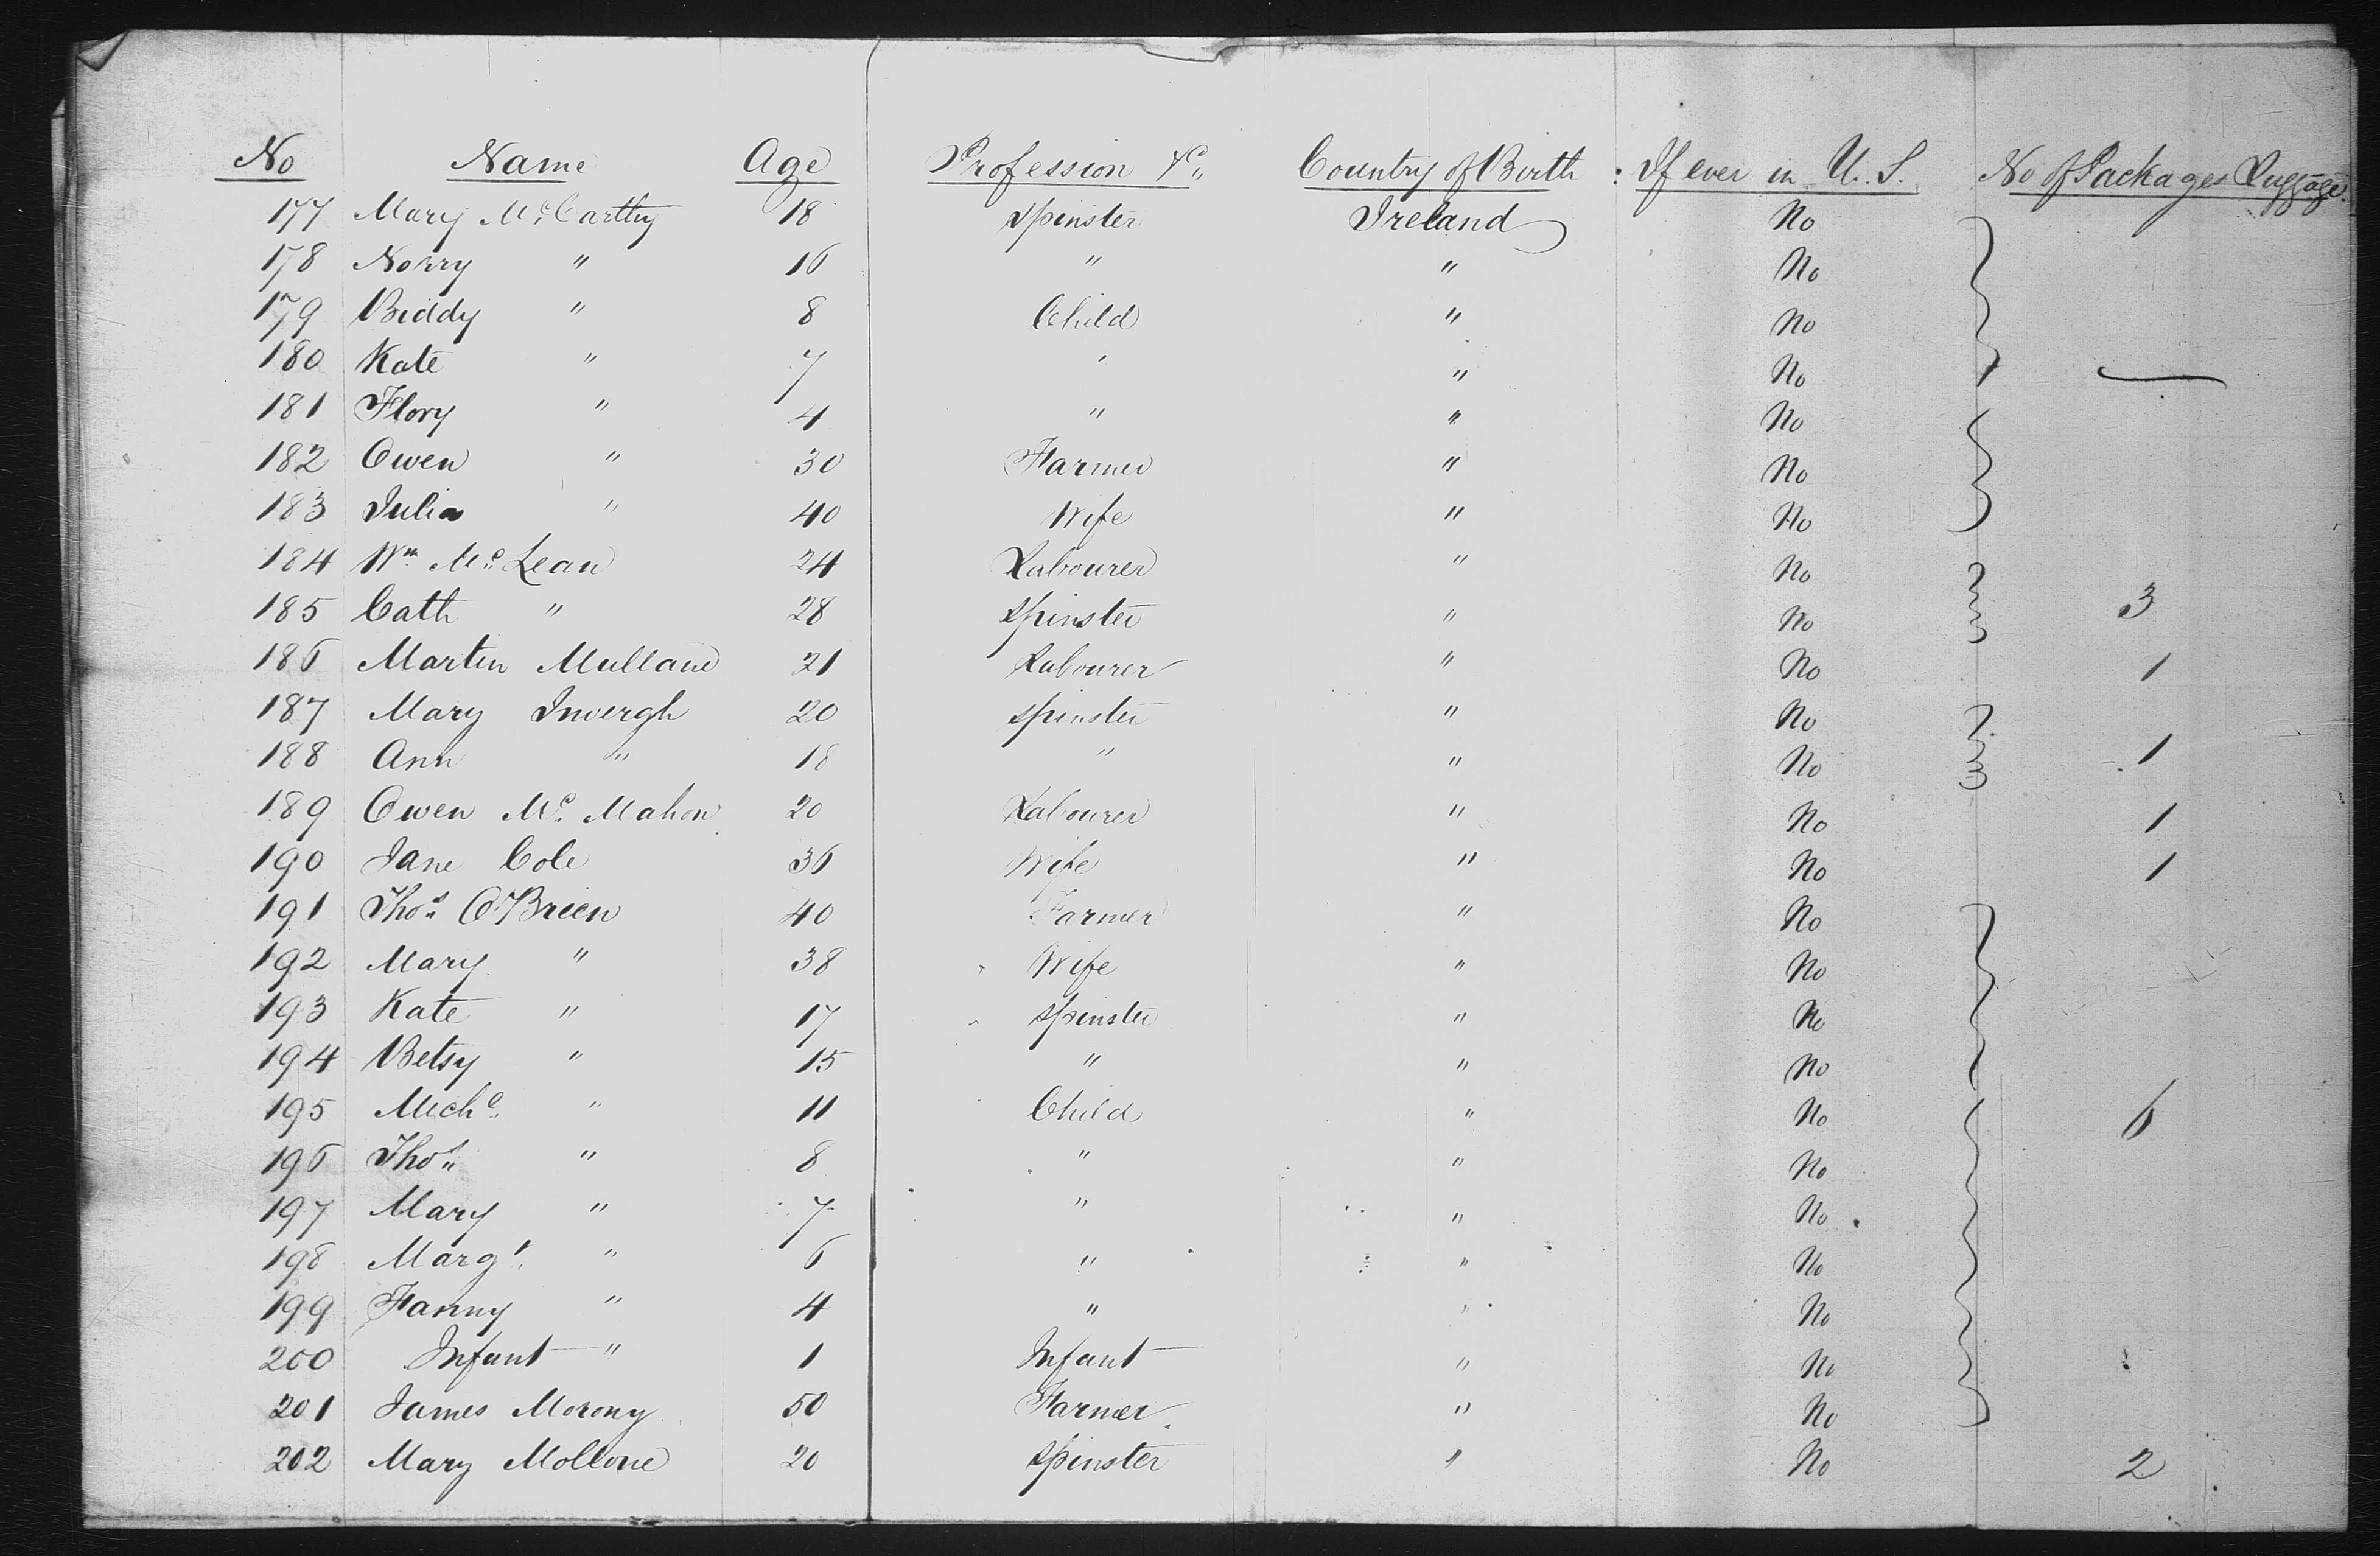 No Name Age Profession &c,, Country of Birth : If ever in U.S. No of Packages Luggage.
177 Mary McCarthy 18 Spinster Ireland No
178 Norry " 16 " " No
179 Biddy " 8 Child " No
180 Kate " 7 ' " No —
181 Flory " 4 " " No
182 Owen " 30 Farmer " No
183 Julia " 40 Wife " No
184 Wm McLean 24 Labourer " No
185 Cath " 28 Spinster " No 3
186 Martin Mullane 21 Labourer " No 1
187 Mary Invergh 20 Spinster " No
188 Ann " 18 " " No 1
189 Owen McMahon 20 Labourer " No 1
190 Jane Cole 36 Wife " No 1
191 Thos O'Brien 40 Farmer " No
192 Mary " 38 Wife " No
193 Kate " 17 Spinster " No
194 Betsy " 15 " " No
195 Michl " 11 Child " No 6
196 Thos " 8 " " No
197 Mary " 7 " " No
198 Margt " 6 " " No
199 Fanny " 4 " " No
200 Infant " 1 Infant " No
201 James Morony 50 Farmer " No
202 Mary Mollone 20 Spinster " No 2